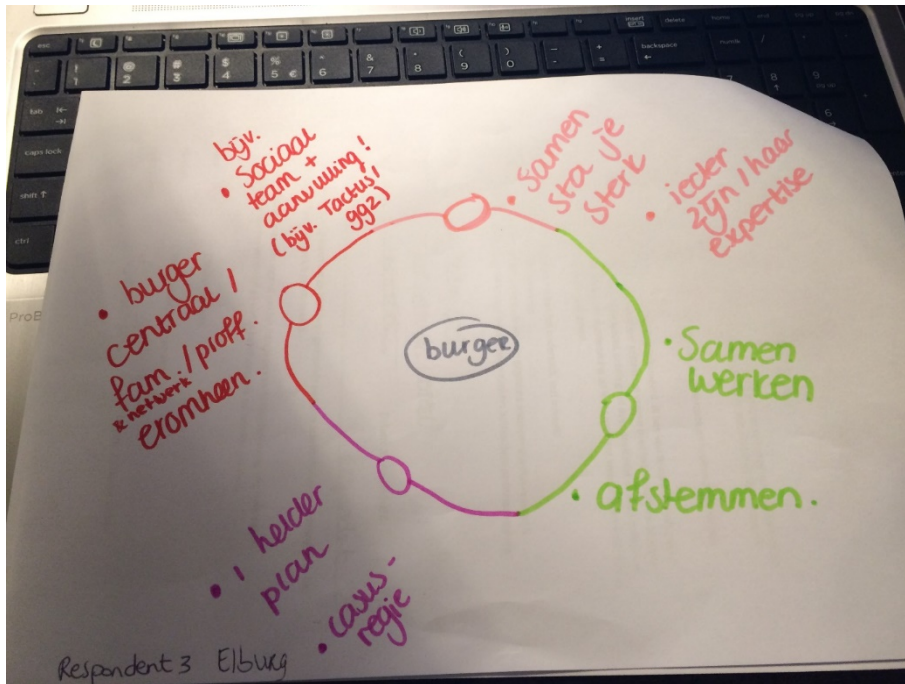 bijv.
• Sociaal
team +
aanvulling!
(bijv. Tactus/
ggz)
• samen
sta je
sterk
• ieder
zijn / haar
expertise
• burger
centraal /
fam. / proff.
& netwerk
eromheen.
burger
• Samen
werken
• afstemmen.
• 1 helder
plan
• casus-
regie
Respondent 3 Elburg
esc
tab
caps lock
shift
ctrl
insert
delete
backspace
ProB